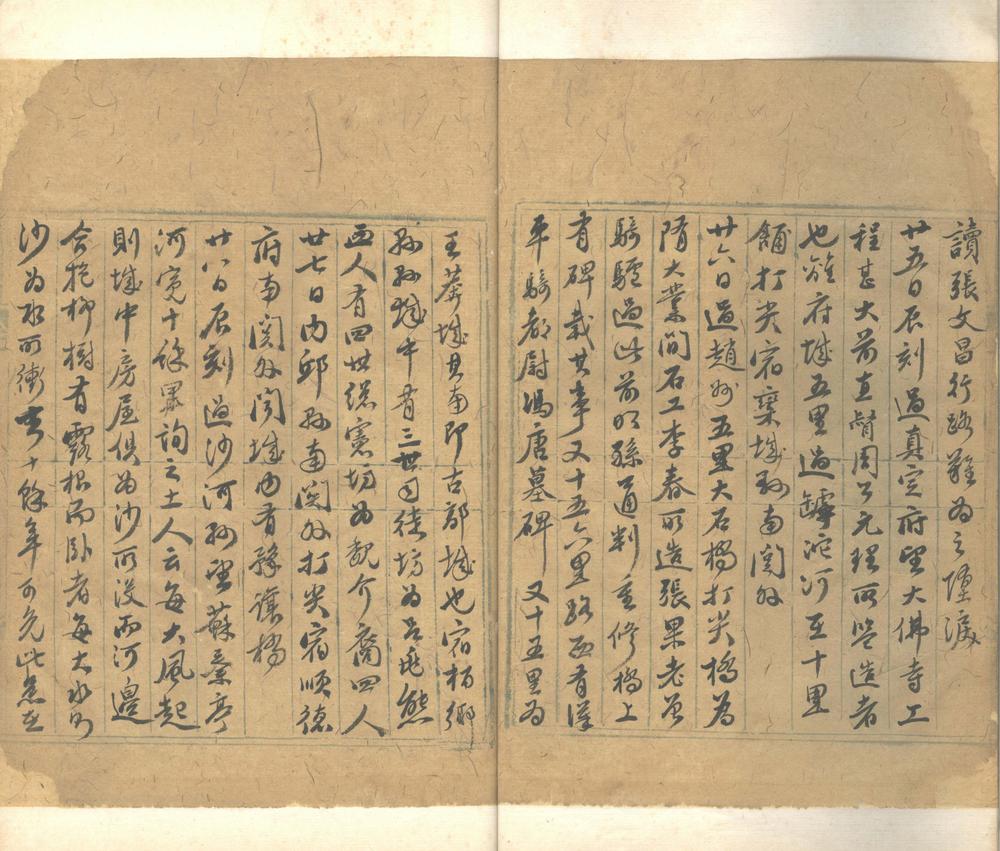 讀張文昌行路難為之墮淚
廿五日辰刻過真定府望大佛寺工
程甚大前直督周公元理所監造者
也離府城五里過罅沱河至十里
鋪打尖宿欒城縣南関外
廿六日過趙州五里大石橋打尖橋為
隋大業間石工李春所造張果老曾
騎驢過此前明孫通判重修橋上
有碑載其事又十五六里路西有漢
平騎都尉馮唐墓碑又十五里為
王莽城其南即古鄗城也宿栢鄉
縣縣城中有三世司徒坊為呂兆熊
西人有四世總憲坊為魏介裔四人
廿七日內邱縣南関外打尖宿順德
府南関外関城內有豫讓橋
廿八日辰刻過沙河縣望蘇秦亭
河寬十餘里詢之土人云每大風起
則城中房屋俱為沙所沒而河邊
合抱柳樹有露根而臥者每大水則
沙為水所衝去十餘年可免此患在